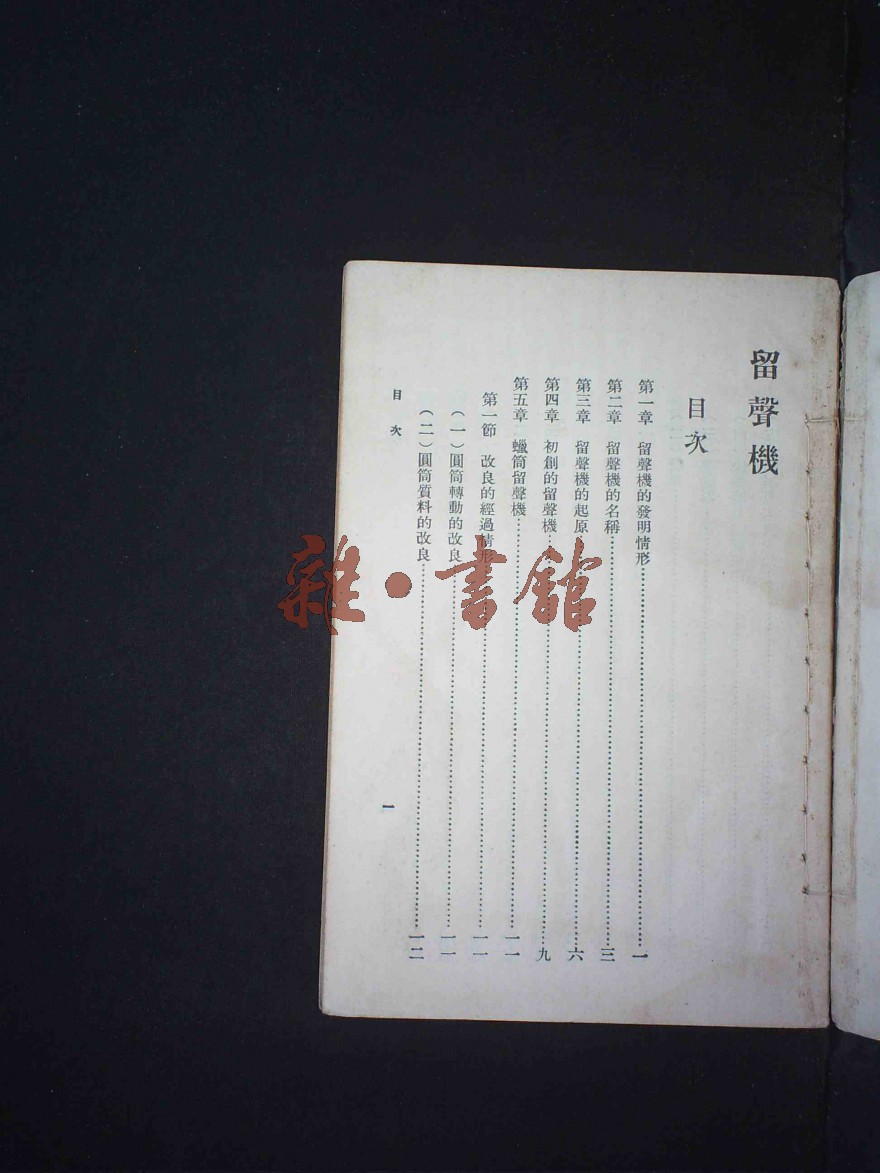 留聲機
目次
第一章 留聲機的發明情形……一
第二章 留聲機的名稱……三
第三章 留聲機的起原……六
第四章 初創的留聲機……九
第五章 蠟筒留聲機……一一
第一節 改良的經過情形……一一
（一）圓筒轉動的改良……一一
（二）圓筒質料的改良……一二
目次
一
雜·書館